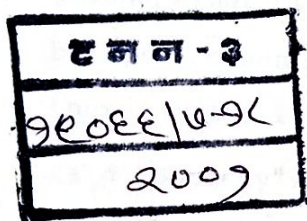 ट न न - ३
१९०६६/५-१८
२००१